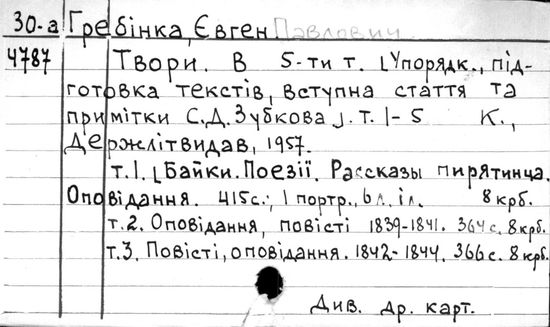 30-а Гребінка, Євген Павлович.
4787 Твори. В 5-ти т. [Упорядк., під-
готовка текстів, вступна стаття та
примітки С.Д. Зубкова]. т. 1-5 К.,
Держлітвидав, 1957.
т.1. [Байки. Поезії. Рассказы пирятинца.
Оповідання. 415с.; 1 портр., 6 л. іл. 8 крб.
т.2. Оповідання, повісті 1839-1841. 364 с. 8 крб.
т.3. Повісті, оповідання. 1842-1844. 366 с. 8 крб.
Див. др. карт.